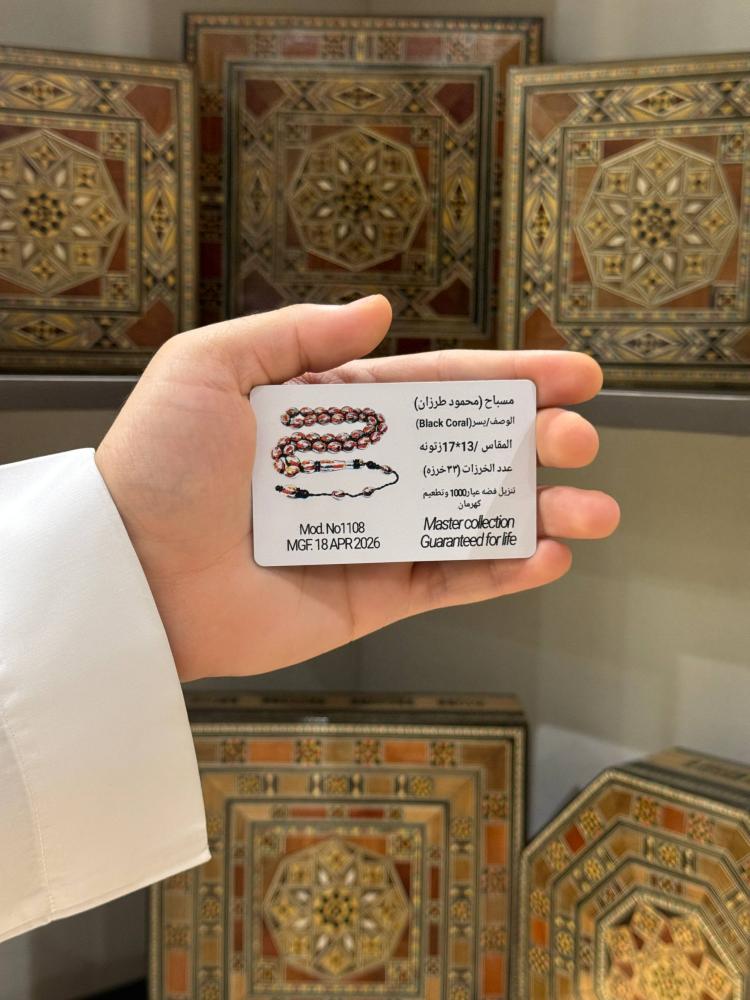 مسباح (محمود طرزان)
الوصف/يسر(Black Coral)
المقاس /13*17زتونه
عدد الخرزات (٣٣خرزه)
تنزيل فضه عيار1000 وتطعيم
كهرمان
Master collection
Guaranteed for life
Mod. No1108
MGF. 18 APR 2026